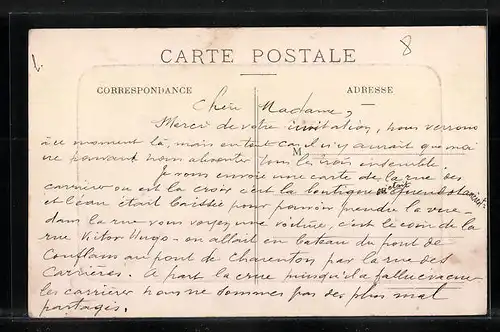 8
CARTE POSTALE
CORRESPONDANCE
ADRESSE
M
Chère Madame,
Merci de votre invitation, nous verrons
à ce moment là, mais en tout cas il n'y aurait que moi
ne pouvant nous absenter tous les trois ensemble.
Je vous envoie une carte de la rue des
carrières ou est la croix c'est la boutique
et l'eau était baissée pour pouvoir prendre la vue -
dans la rue vous voyez une voiture, c'est le coin de la
rue Victor Hugo - on allait en bateau du pont de
Conflans au pont de Charenton par la rue des
Carrières. A part la crue puisqu'il a fallu évacuer
les carrières nous ne sommes pas des plus mal
partagés.